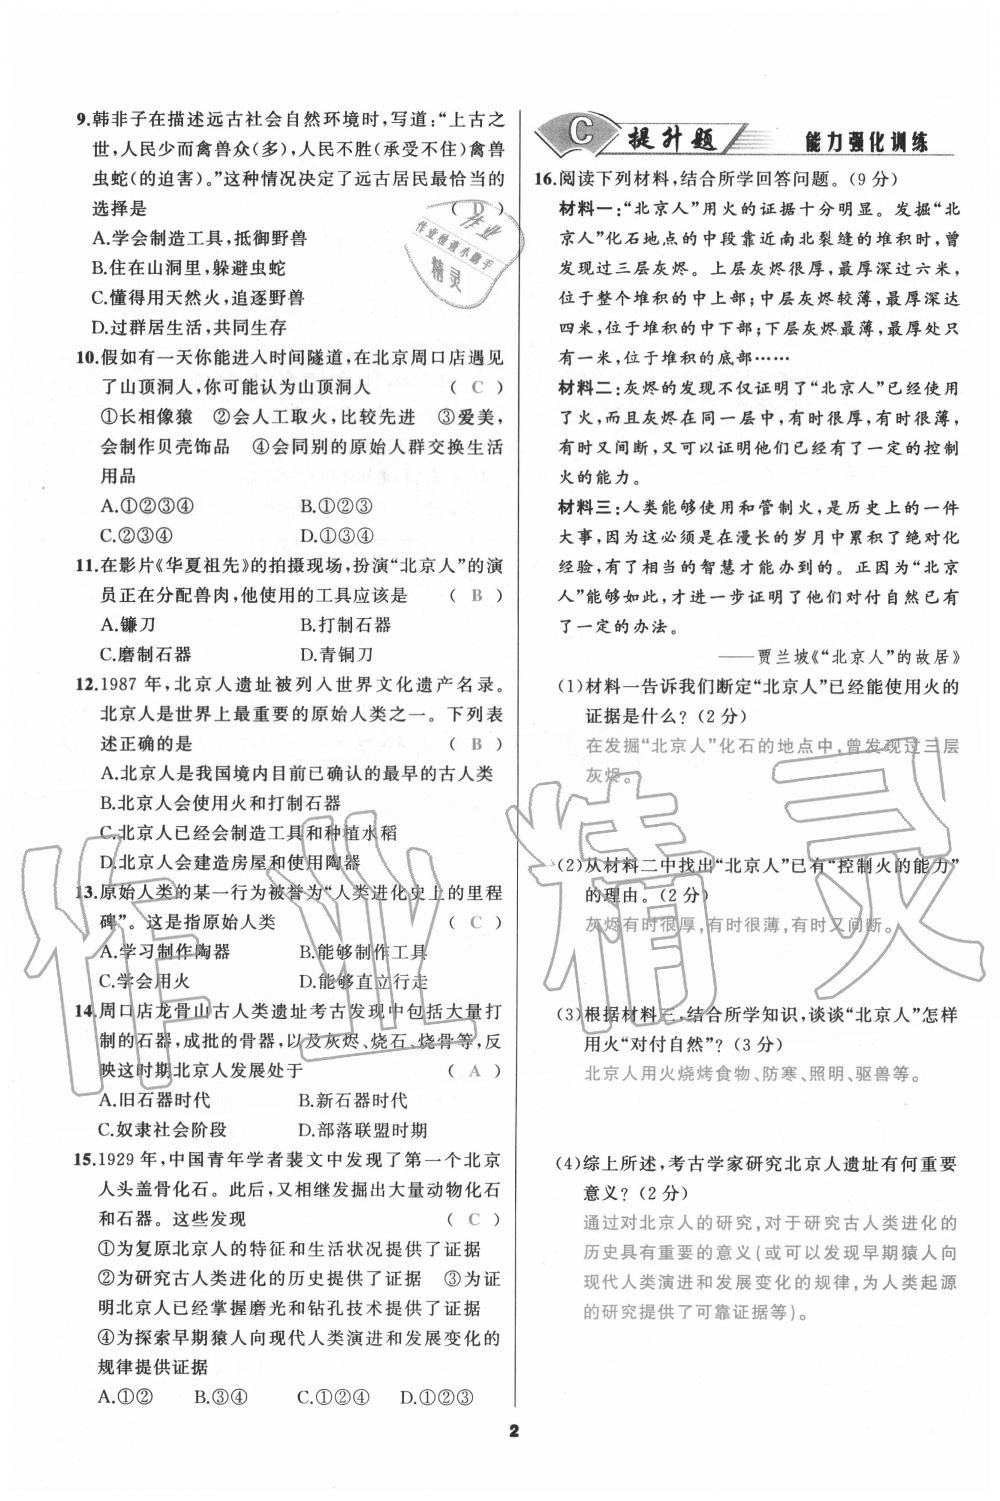 9.韩非子在描述远古社会自然环境时,写道:“上古之
世,人民少而禽兽众(多),人民不胜(承受不住)禽兽
虫蛇(的迫害)。”这种情况决定了远古居民最恰当的
选择是 ( D )
A.学会制造工具,抵御野兽
B.住在山洞里,躲避虫蛇
C.懂得用天然火,追逐野兽
D.过群居生活,共同生存
10.假如有一天你能进入时间隧道,在北京周口店遇见
了山顶洞人,你可能认为山顶洞人 ( C )
①长相像猿 ②会人工取火,比较先进 ③爱美,
会制作贝壳饰品 ④会同别的原始人群交换生活
用品
A.①②③④ B.①②③
C.②③④ D.①③④
11.在影片《华夏祖先》的拍摄现场,扮演“北京人”的演
员正在分配兽肉,他使用的工具应该是 ( B )
A.镰刀 B.打制石器
C.磨制石器 D.青铜刀
12.1987 年,北京人遗址被列入世界文化遗产名录。
北京人是世界上最重要的原始人类之一。下列表
述正确的是 ( B )
A.北京人是我国境内目前已确认的最早的古人类
B.北京人会使用火和打制石器
C.北京人已经会制造工具和种植水稻
D.北京人会建造房屋和使用陶器
13.原始人类的某一行为被誉为“人类进化史上的里程
碑”。这是指原始人类 ( C )
A.学习制作陶器 B.能够制作工具
C.学会用火 D.能够直立行走
14.周口店龙骨山古人类遗址考古发现中包括大量打
制的石器,成批的骨器,以及灰烬、烧石、烧骨等,反
映这时期北京人发展处于 ( A )
A.旧石器时代 B.新石器时代
C.奴隶社会阶段 D.部落联盟时期
15.1929 年,中国青年学者裴文中发现了第一个北京
人头盖骨化石。此后,又相继发掘出大量动物化石
和石器。这些发现 ( C )
①为复原北京人的特征和生活状况提供了证据
②为研究古人类进化的历史提供了证据 ③为证
明北京人已经掌握磨光和钻孔技术提供了证据
④为探索早期猿人向现代人类演进和发展变化的
规律提供证据
A.①② B.③④ C.①②④ D.①②③
C 提升题 能力强化训练
16.阅读下列材料,结合所学回答问题。(9 分)
材料一:“北京人”用火的证据十分明显。发掘“北
京人”化石地点的中段靠近南北裂缝的堆积时,曾
发现过三层灰烬。上层灰烬很厚,最厚深过六米,
位于整个堆积的中上部;中层灰烬较薄,最厚深达
四米,位于堆积的中下部;下层灰烬最薄,最厚处只
有一米,位于堆积的底部……
材料二:灰烬的发现不仅证明了“北京人”已经使用
了火,而且灰烬在同一层中,有时很厚,有时很薄,
有时又间断,又可以证明他们已经有了一定的控制
火的能力。
材料三:人类能够使用和管制火,是历史上的一件
大事,因为这必须是在漫长的岁月中累积了绝对化
经验,有了相当的智慧才能办到的。正因为“北京
人”能够如此,才进一步证明了他们对付自然已有
了一定的办法。
——贾兰坡《“北京人”的故居》
(1)材料一告诉我们断定“北京人”已经能使用火的
证据是什么?(2 分)
在发掘“北京人”化石的地点中,曾发现过三层
灰烬。
(2)从材料二中找出“北京人”已有“控制火的能力”
的理由。(2 分)
灰烬有时很厚,有时很薄,有时又间断。
(3)根据材料三,结合所学知识,谈谈“北京人”怎样
用火“对付自然”?(3 分)
北京人用火烧烤食物、防寒、照明、驱兽等。
(4)综上所述,考古学家研究北京人遗址有何重要
意义?(2 分)
通过对北京人的研究,对于研究古人类进化的
历史具有重要的意义(或可以发现早期猿人向
现代人类演进和发展变化的规律,为人类起源
的研究提供了可靠证据等)。
2
作业
作业检查小助手
精灵
作业精灵